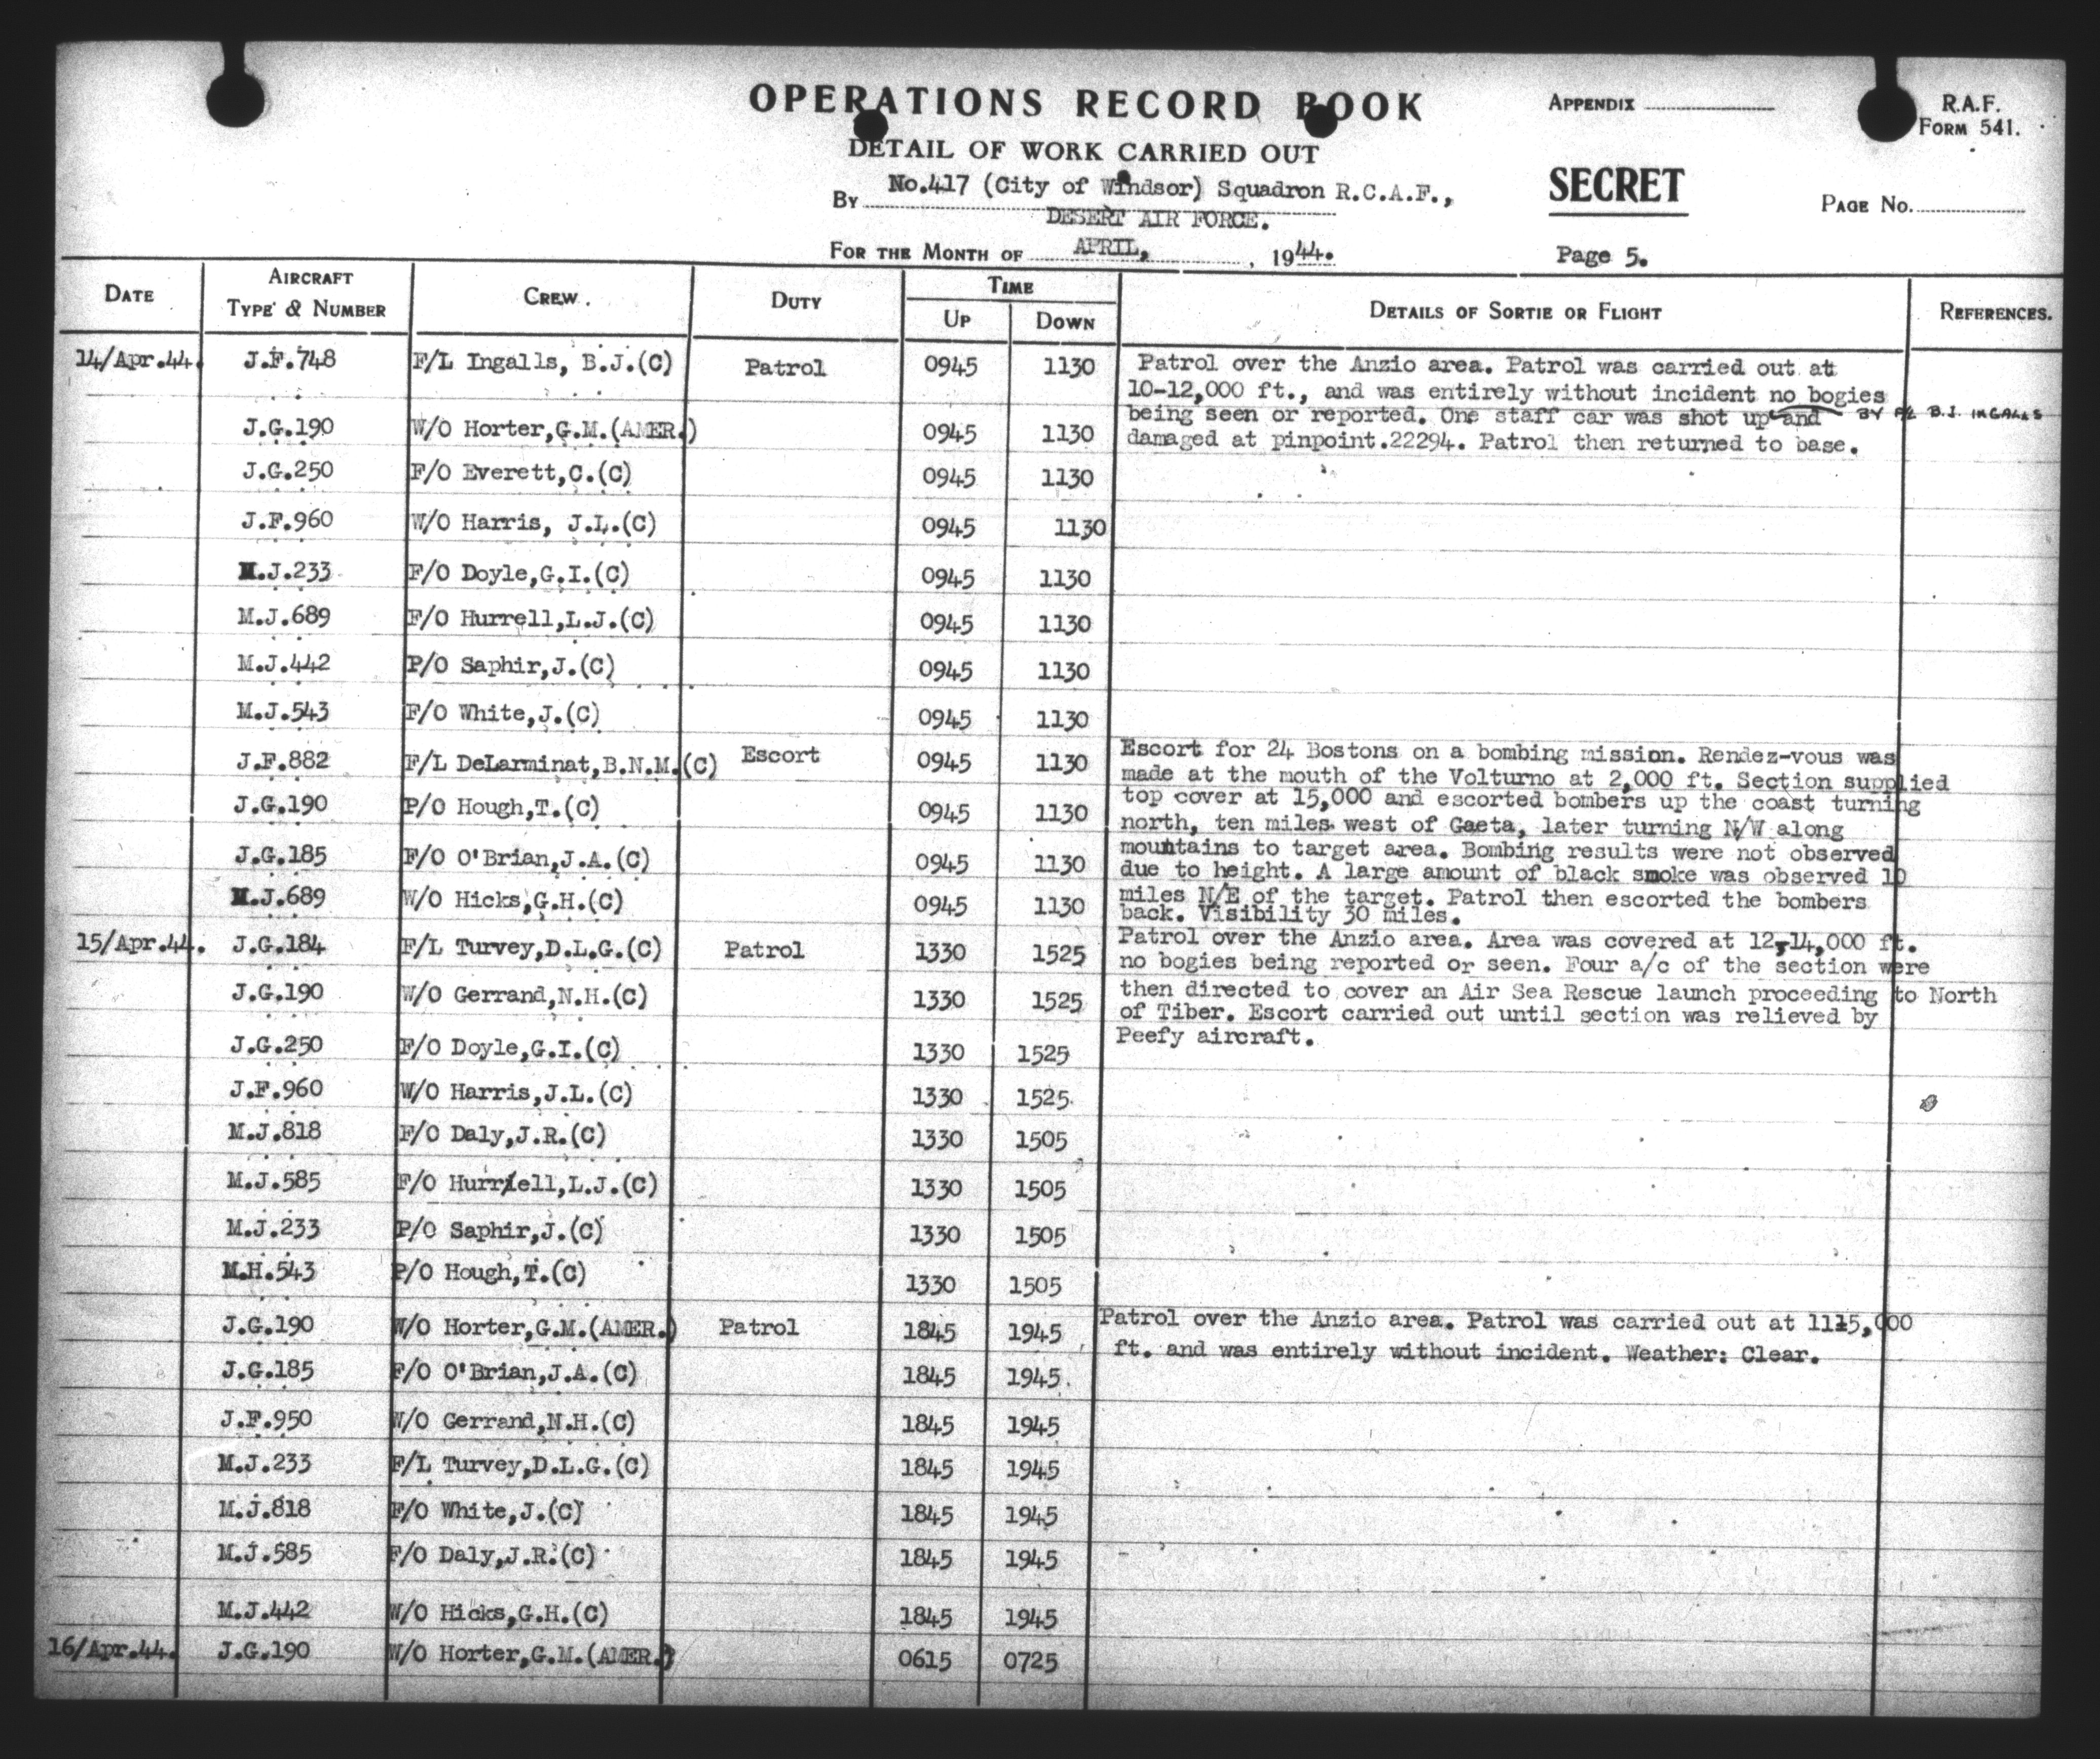 OPERATIONS RECORD BOOK
APPENDIX
R.A.F.
FORM 541.
DETAIL OF WORK CARRIED OUT
SECRET
By No.417 (City of Windsor) Squadron R.C.A.F.,
DESERT AIR FORCE.
PAGE No.
FOR THE MONTH OF APRIL, , 1944.
Page 5.
DATE
AIRCRAFT
TYPE & NUMBER
CREW.
DUTY
TIME
UP
DOWN
DETAILS OF SORTIE OR FLIGHT
REFERENCES.
14/Apr.44. J.F.748 F/L Ingalls, B.J.(C) Patrol 0945 1130 Patrol over the Anzio area. Patrol was carried out at
10-12,000 ft., and was entirely without incident no bogies
being seen or reported. One staff car was shot up and BY F/L B.J. INGALLS
J.G.190 W/O Horter,G.M.(AMER.) 0945 1130 damaged at pinpoint.22294. Patrol then returned to base.
J.G.250 F/O Everett,C.(C) 0945 1130
J.F.960 W/O Harris, J.L.(C) 0945 1130
M.J.233 F/O Doyle,G.I.(C) 0945 1130
M.J.689 F/O Hurrell,L.J.(C) 0945 1130
M.J.442 P/O Saphir,J.(C) 0945 1130
M.J.543 F/O White,J.(C) 0945 1130
J.F.882 F/L DeLarminat,B.N.M.(C) Escort 0945 1130 Escort for 24 Bostons on a bombing mission. Rendez-vous was
made at the mouth of the Volturno at 2,000 ft. Section supplied
J.G.190 P/O Hough,T.(C) 0945 1130 top cover at 15,000 and escorted bombers up the coast turning
north, ten miles west of Gaeta, later turning N/W along
J.G.185 F/O O'Brian,J.A.(C) 0945 1130 mountains to target area. Bombing results were not observed
due to height. A large amount of black smoke was observed 10
M.J.689 W/O Hicks,G.H.(C) 0945 1130 miles N/E of the target. Patrol then escorted the bombers
back. Visibility 30 miles.
15/Apr.44. J.G.184 F/L Turvey,D.L.G.(C) Patrol 1330 1525 Patrol over the Anzio area. Area was covered at 12,-14,000 ft.
no bogies being reported or seen. Four a/c of the section were
J.G.190 W/O Gerrand,N.H.(C) 1330 1525 then directed to cover an Air Sea Rescue launch proceeding to North
of Tiber. Escort carried out until section was relieved by
J.G.250 F/O Doyle,G.I.(C) 1330 1525 Peefy aircraft.
J.F.960 W/O Harris,J.L.(C) 1330 1525
M.J.818 F/O Daly,J.R.(C) 1330 1505
M.J.585 F/O Hurr/ell,L.J.(C) 1330 1505
M.J.233 P/O Saphir,J.(C) 1330 1505
M.H.543 P/O Hough,T.(C) 1330 1505
J.G.190 W/O Horter,G.M.(AMER.) Patrol 1845 1945 Patrol over the Anzio area. Patrol was carried out at 1115,000
ft. and was entirely without incident. Weather: Clear.
J.G.185 F/O O'Brian,J.A.(C) 1845 1945
J.F.950 W/O Gerrand,N.H.(C) 1845 1945
M.J.233 F/L Turvey,D.L.G.(C) 1845 1945
M.J.818 F/O White,J.(C) 1845 1945
M.J.585 F/O Daly,J.R.(C) 1845 1945
M.J.442 W/O Hicks,G.H.(C) 1845 1945
16/Apr.44. J.G.190 W/O Horter,G.M.(AMER.) 0615 0725